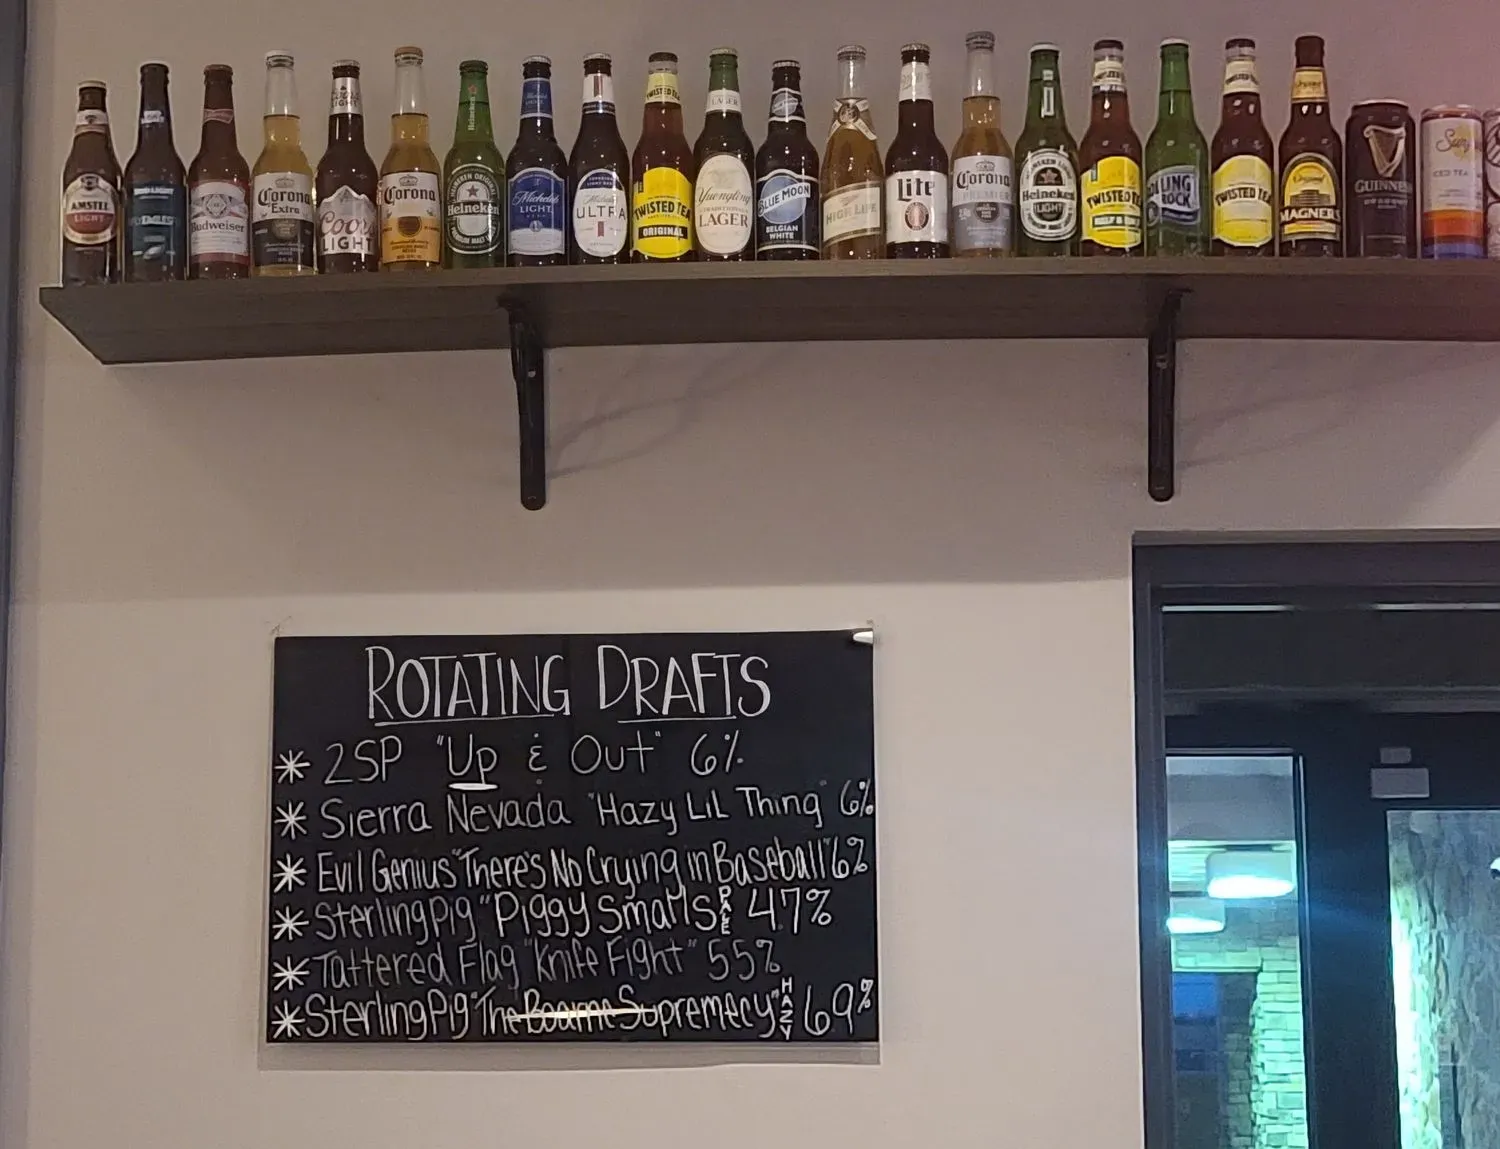 AMSTEL
LIGHT
BUD LIGHT
Budweiser
Corona
Extra
COORS
LIGHT
Coors
LIGHT
Corona
Heineken
HEINEKEN ORIGINAL
Heineken
Michelob
LIGHT
Michelob
ULTRA
TWISTED TEA
TWISTED TEA
ORIGINAL
LAGER
Yuengling
LAGER
BLUE MOON
BELGIAN
WHITE
HIGH LIFE
Lite
Corona
PREMIER
Heineken
LIGHT
TWISTED TEA
HALF &
ROLLING
ROCK
TWISTED TEA
Original
MAGNERS
GUINNESS
ICED TEA
ROTATING DRAFTS
* 2SP "Up & Out" 6%
* Sierra Nevada "Hazy LiL Thing" 6%
* Evil Genius "There's No Crying in Baseball" 6%
* Sterling Pig "Piggy Smalls" PALE 47%
* Tattered Flag "Knife Fight" 55%
* Sterling Pig "The Bourne Supremecy" HAZY 69%